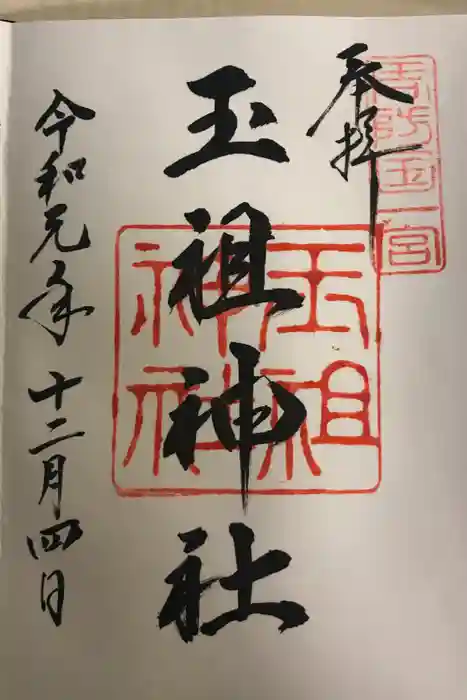 奉拝
周防国一宮
玉祖神社
玉祖神社
令和元年十二月四日